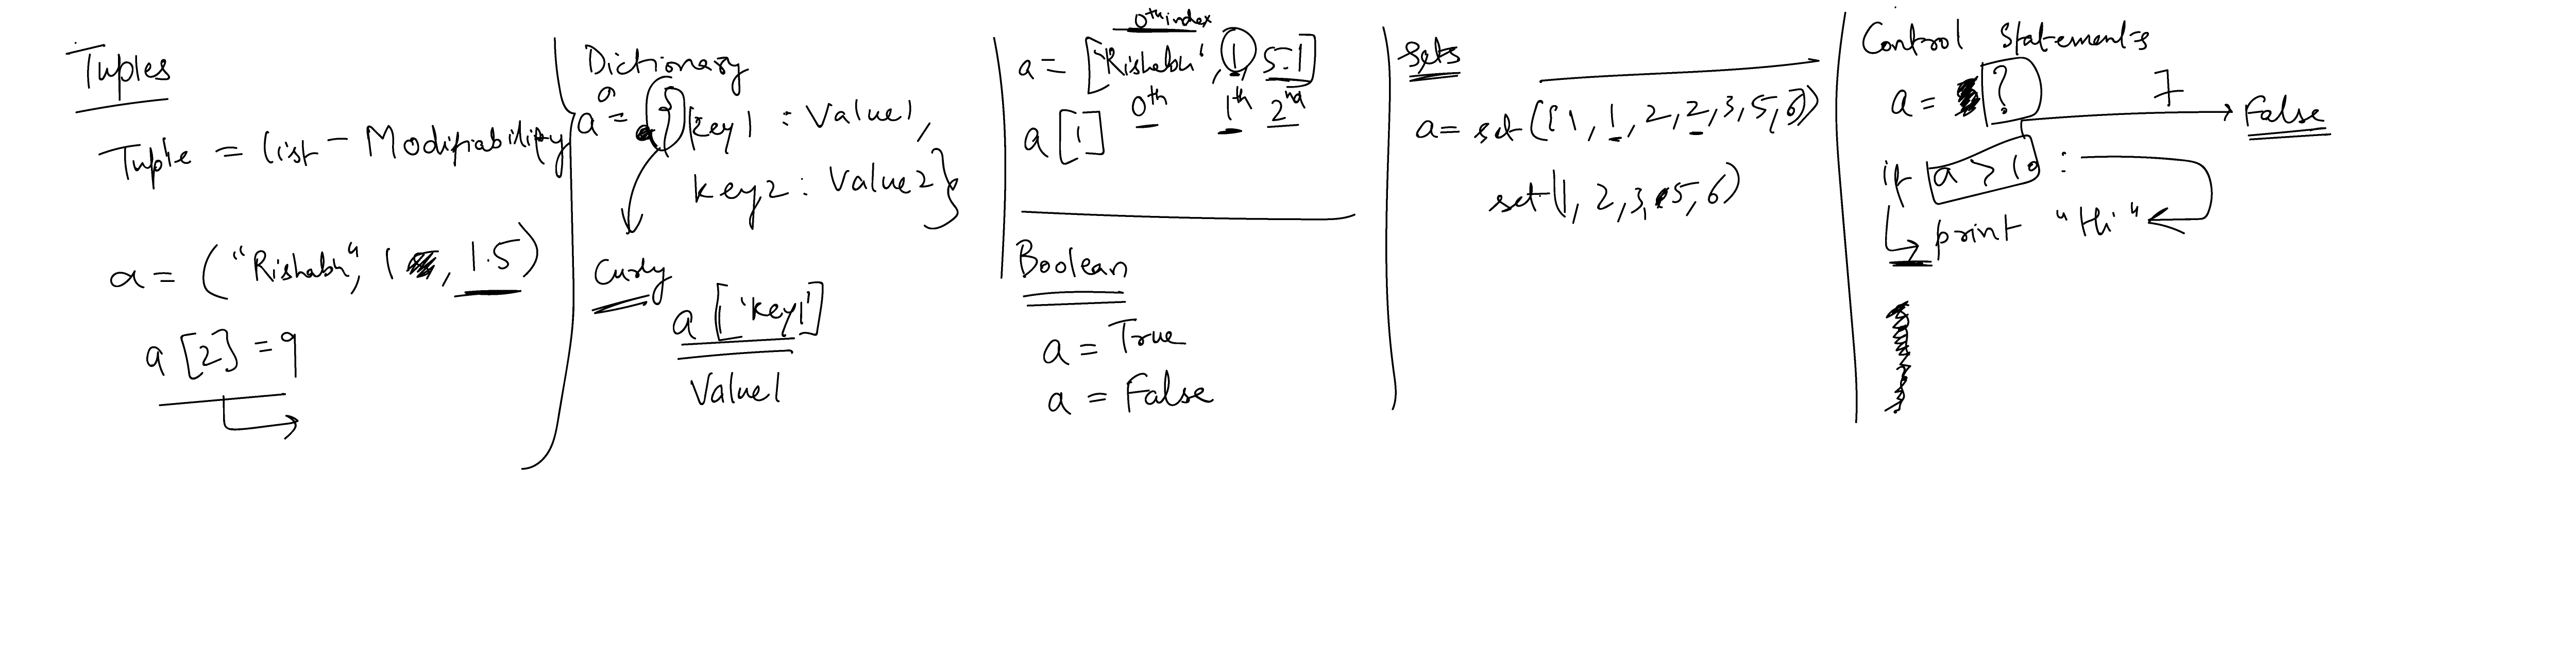 Tuples
Tuple = list - Modifiability
a = ("Rishabh", 1, 1.5)
a[2] = 9
Dictionary
a = {key1 : Value1,
key2 : Value2}
Curly
a['key1']
Value1
0th index
a = ['Rishabh', 1, 5.1]
0th 1th 2nd
a[1]
Boolean
a = True
a = False
Sets
a = set([1, 1, 2, 2, 3, 5, 6])
set(1, 2, 3, 5, 6)
Control Statements
a = ? 7
False
if a > 10 :
print "Hi"